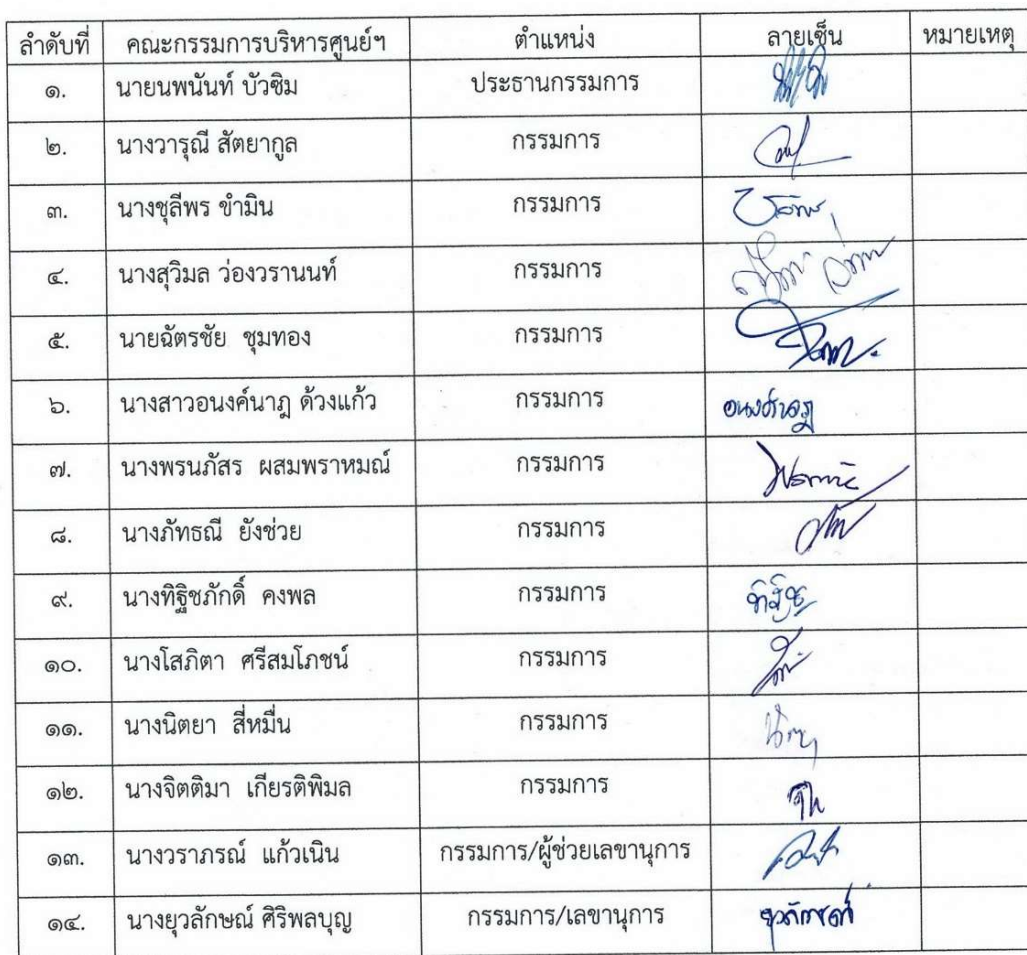 ลำดับที่ คณะกรรมการบริหารศูนย์ฯ ตำแหน่ง ลายเซ็น หมายเหตุ
๑. นายนพนันท์ บัวซิม ประธานกรรมการ
๒. นางวารุณี สัตยากูล กรรมการ
๓. นางชุลีพร ขำมิน กรรมการ
๔. นางสุวิมล ว่องวรานนท์ กรรมการ
๕. นายฉัตรชัย ชุมทอง กรรมการ
๖. นางสาวอนงค์นาฎ ด้วงแก้ว กรรมการ อนงค์นาฎ
๗. นางพรนภัสร ผสมพราหมณ์ กรรมการ
๘. นางภัทธณี ยังช่วย กรรมการ
๙. นางทิฐิชภักดิ์ คงพล กรรมการ
๑๐. นางโสภิตา ศรีสมโภชน์ กรรมการ
๑๑. นางนิตยา สี่หมื่น กรรมการ
๑๒. นางจิตติมา เกียรติพิมล กรรมการ
๑๓. นางวราภรณ์ แก้วเนิน กรรมการ/ผู้ช่วยเลขานุการ
๑๔. นางยุวลักษณ์ ศิริพลบุญ กรรมการ/เลขานุการ ยุวลักษณ์